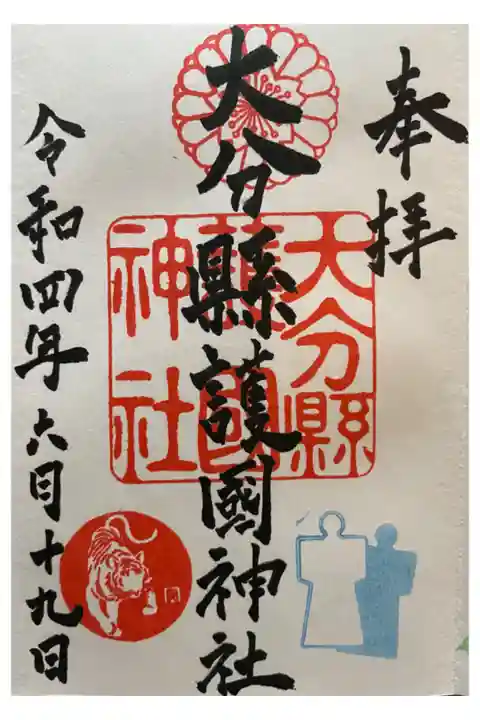 奉拝
大分縣護國神社
大分縣
護國
神社
令和四年六月十九日